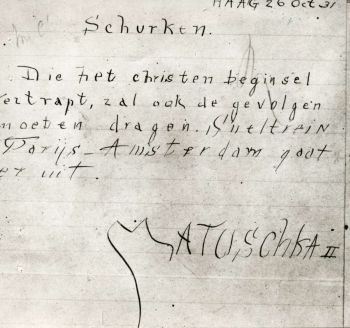 HAAG 26 Oct 31
Schurken.
Die het christen beginsel
vertrapt, zal ook de gevolgen
moeten dragen. Sneltrein
Parijs-Amsterdam gaat
er uit.
MATUSCHKA II